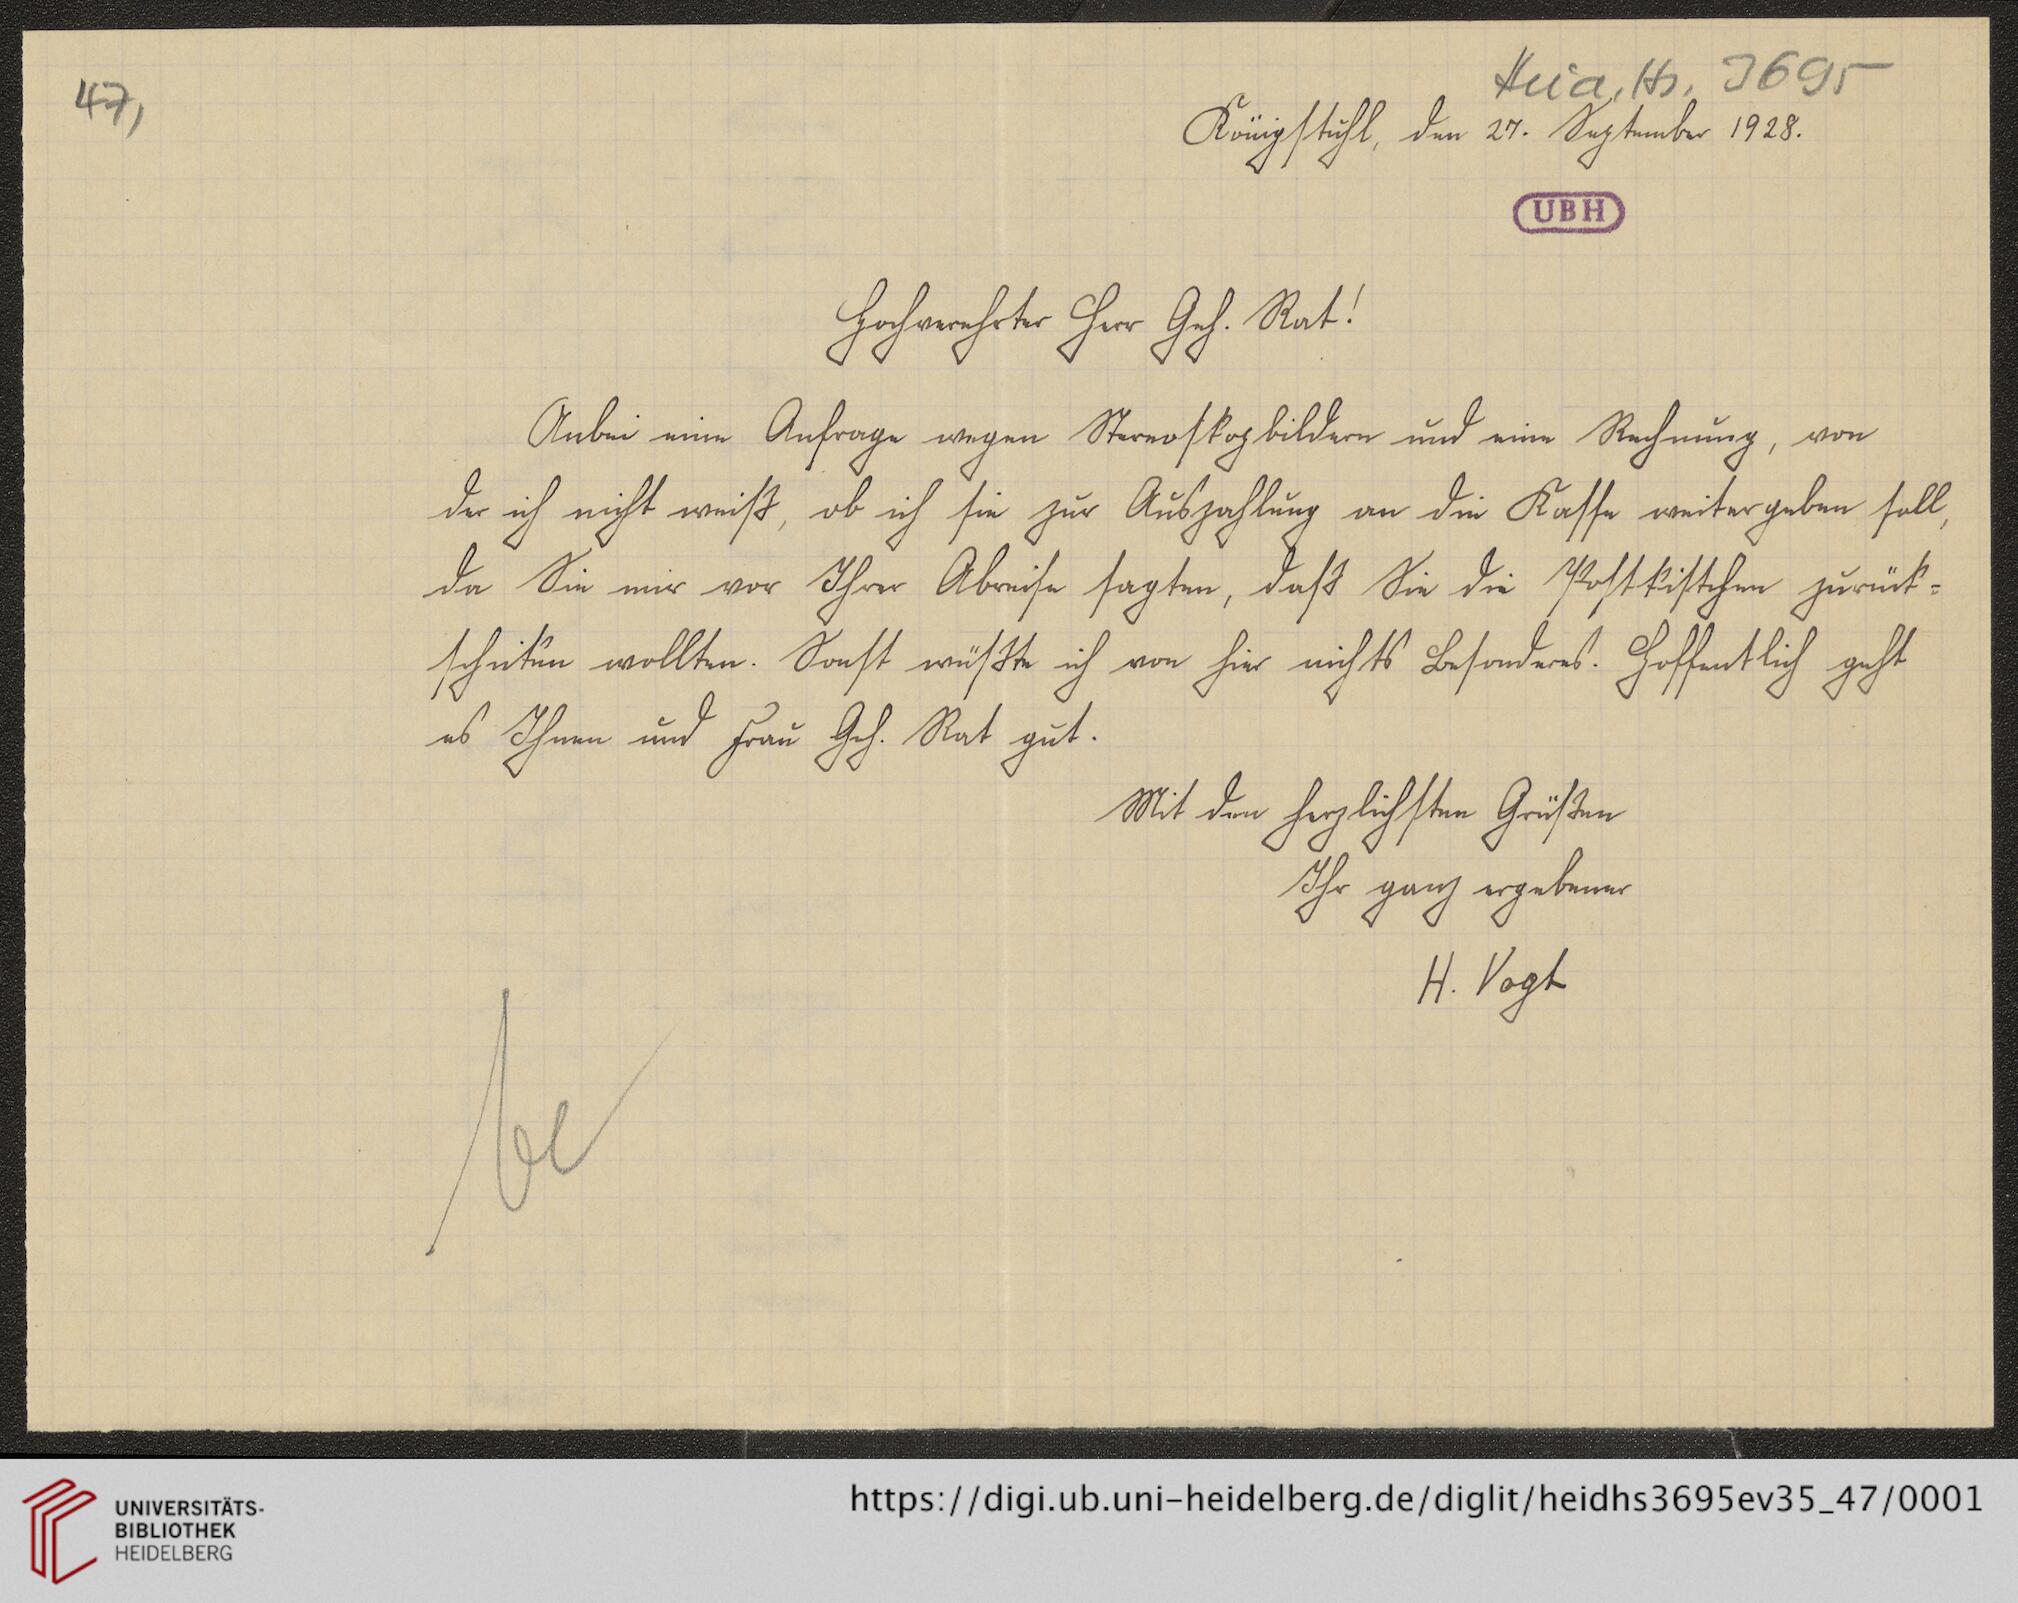 47,
Heid. Hs. 3695
Königstuhl, den 27. September 1928.
UBH
Hochverehrter Herr Geh. Rat!
Anbei eine Anfrage wegen Stereoskopbildern und eine Rechnung, von
der ich nicht weiß, ob ich sie zur Auszahlung an die Kasse weitergeben soll,
da Sie mir vor Ihrer Abreise sagten, daß Sie die Postkistchen zurück=
schicken wollten. Sonst wüßte ich von hier nichts Besonderes. Hoffentlich geht
es Ihnen und Frau Geh. Rat gut.
Mit den herzlichsten Grüßen
Ihr ganz ergebener
H. Vogt
UNIVERSITÄTS-
BIBLIOTHEK
HEIDELBERG
https://digi.ub.uni-heidelberg.de/diglit/heidhs3695ev35_47/0001